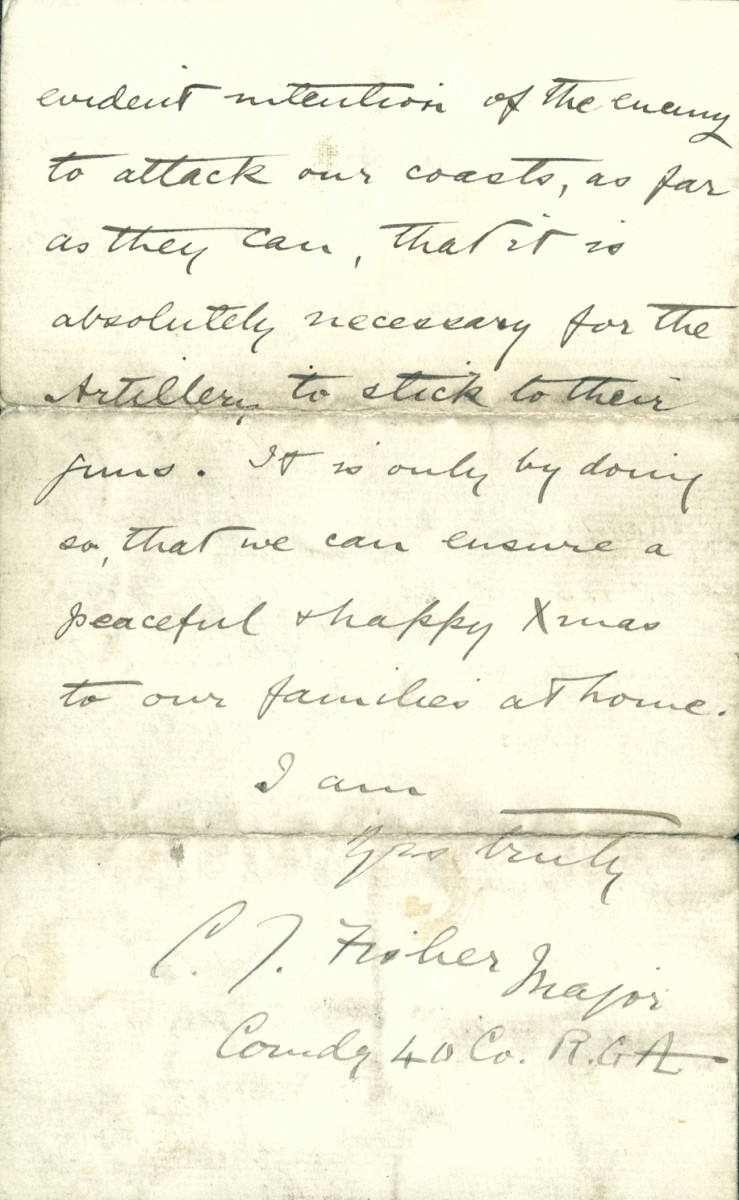 evident intention of the enemy
to attack our coasts, as far
as they can, that it is
absolutely necessary for the
Artillery to stick to their
guns. It is only by doing
so, that we can ensure a
peaceful & happy Xmas
to our families at home.
I am
Yrs truly
C. J. Fisher Major
Comdg 40 Co. R.G.A